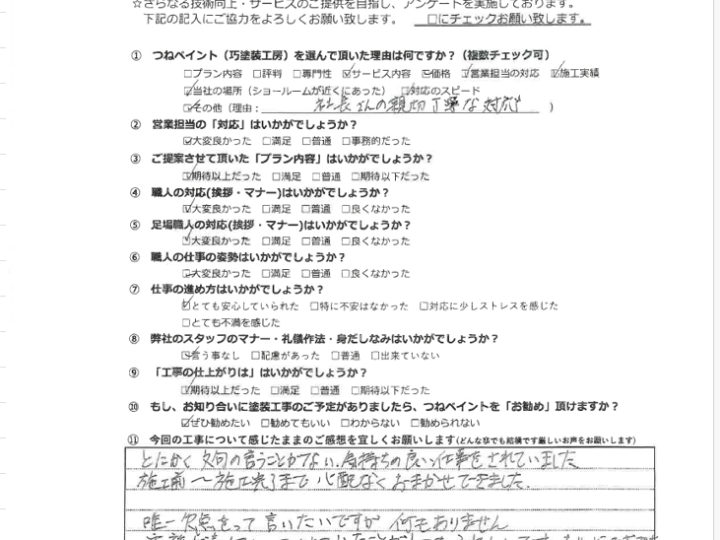 ☆さらなる技術向上・サービスのご提供を目指し、アンケートを実施しております。
下記の記入にご協力をよろしくお願い致します。 □にチェックお願い致します。
① つねペイント（巧塗装工房）を選んで頂いた理由は何ですか？（複数チェック可）
□プラン内容 □評判 □専門性 ☑サービス内容 ☑価格 ☑営業担当の対応 ☑施工実績
☑当社の場所（ショールームが近くにあった） ☑対応のスピード
☑その他（理由： 社長さんの親切丁寧な対応 ）
② 営業担当の「対応」はいかがでしょうか？
☑大変良かった □満足 □普通 □事務的だった
③ ご提案させて頂いた「プラン内容」はいかがでしょうか？
☑期待以上だった □満足 □普通 □期待以下だった
④ 職人の対応(挨拶・マナー)はいかがでしょうか？
☑大変良かった □満足 □普通 □良くなかった
⑤ 足場職人の対応(挨拶・マナー)はいかがでしょうか？
☑大変良かった □満足 □普通 □良くなかった
⑥ 職人の仕事の姿勢はいかがでしょうか？
☑大変良かった □満足 □普通 □良くなかった
⑦ 仕事の進め方はいかがでしょうか？
☑とても安心していられた □特に不安はなかった □対応に少しストレスを感じた
□とても不満を感じた
⑧ 弊社のスタッフのマナー・礼儀作法・身だしなみはいかがでしょうか？
☑言う事なし □配慮があった □普通 □出来ていない
⑨ 「工事の仕上がりは」はいかがでしょうか？
☑期待以上だった □満足 □普通 □期待以下だった
⑩ もし、お知り合いに塗装工事のご予定がありましたら、つねペイントを「お勧め」頂けますか？
☑ぜひ勧めたい □勧めてもいい □わからない □勧められない
⑪ 今回の工事について感じたままのご感想を宜しくお願いします(どんな事でも結構です厳しいお声をお願いします)
とにかく文句の言うことがない、気持ちの良い仕事をされていました
施工前〜施工完了まで心配なくおまかせできました.
唯一欠点をって言いたいですが何もありません